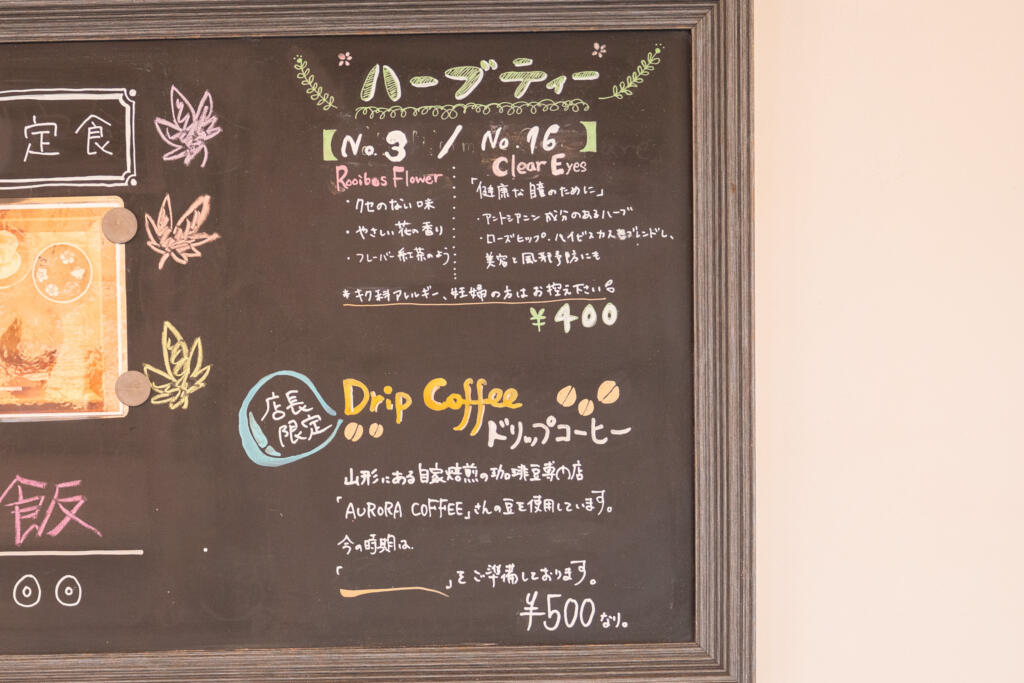 定食
飯
00
ハーブティー
【No.3 / No.16】
Rooibos Flower
・クセのない味
・やさしい花の香り
・フレーバー紅茶のよう
Clear Eyes
「健康な瞳のために」
・アントシアニン成分のあるハーブ
・ローズヒップ、ハイビスカス ブレンドし、
美容と風邪予防にも
*キク科アレルギー、妊婦の方はお控え下さい
¥400
店長
限定
Drip Coffee
ドリップコーヒー
山形にある自家焙煎の珈琲豆専門店
「AURORA COFFEE」さんの豆を使用しています。
今の時期は
「 」をご準備しております。
¥500なり。